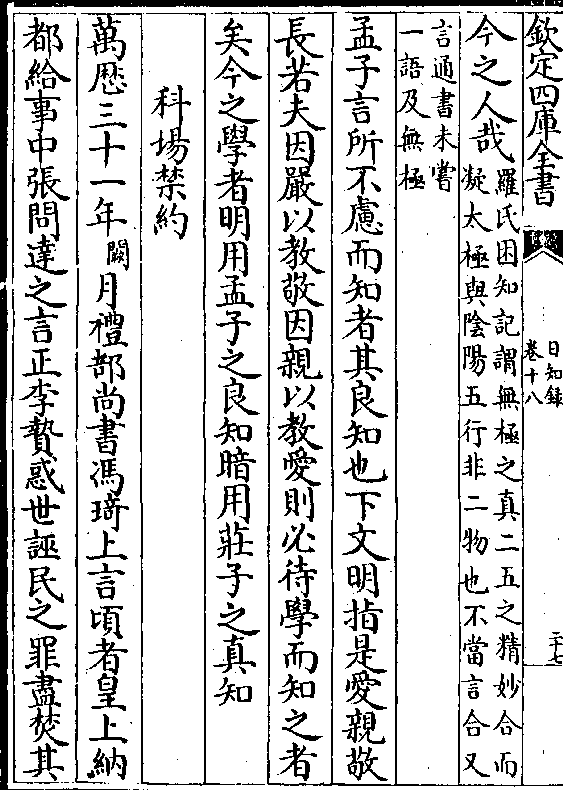 欽定四庫全書
日知錄
卷十八
二十七
今之人哉
羅氏困知記謂無極之真二五之精妙合而
凝太極與陰陽五行非二物也不當言合又
言通書未嘗
一語及無極
孟子言所不慮而知者其良知也下文明指是愛親敬
長若夫因嚴以教敬因親以教愛則必待學而知之者
矣今之學者明用孟子之良知暗用莊子之真知
科場禁約
萬厯三十一年闕月禮部尚書馮琦上言頃者皇上納
都給事中張問達之言正李贄惑世誣民之罪盡焚其